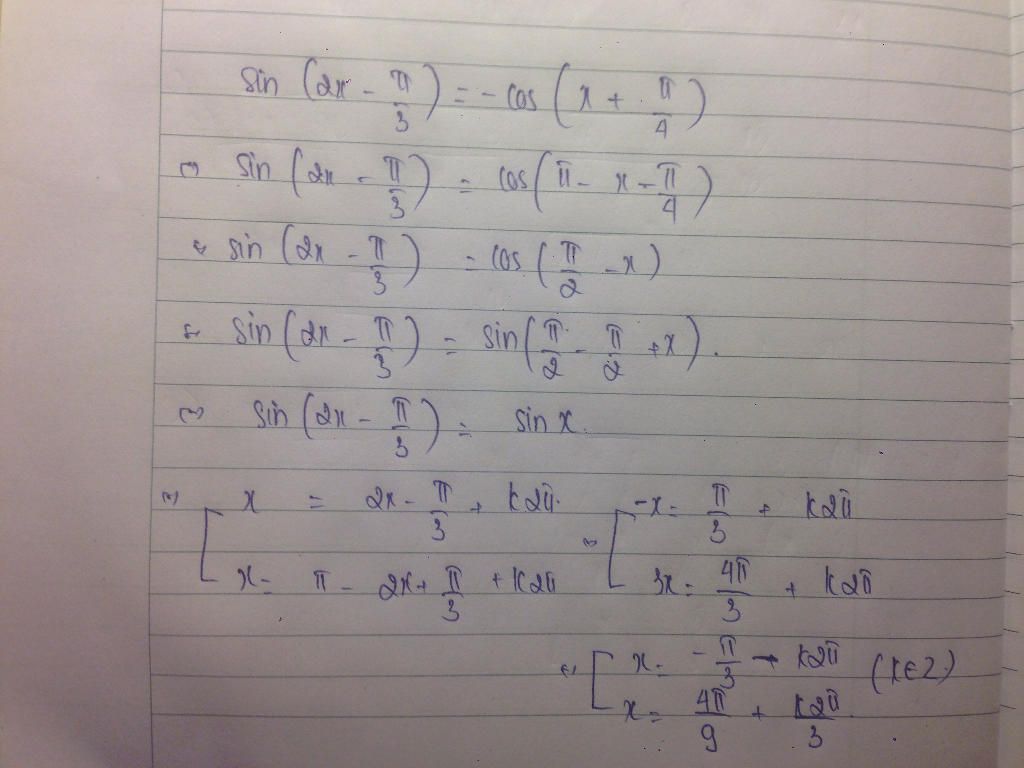 sin (2x - π/3) = - cos (x + π/4)
⇔ sin (2x - π/3) = cos (π - x - π/4)
⇔ sin (2x - π/3) = cos (π/2 - x)
⇔ sin (2x - π/3) = sin (π/2 - π/2 + x).
⇔ sin (2x - π/3) = sin x.
⇔ [ x = 2x - π/3 + k2π. ⇔ [ -x = π/3 + k2π
x = π - 2x + π/3 + k2π 3x = 4π/3 + k2π
⇔ [ x = - π/3 - k2π (k∈Z)
x = 4π/9 + k2π/3